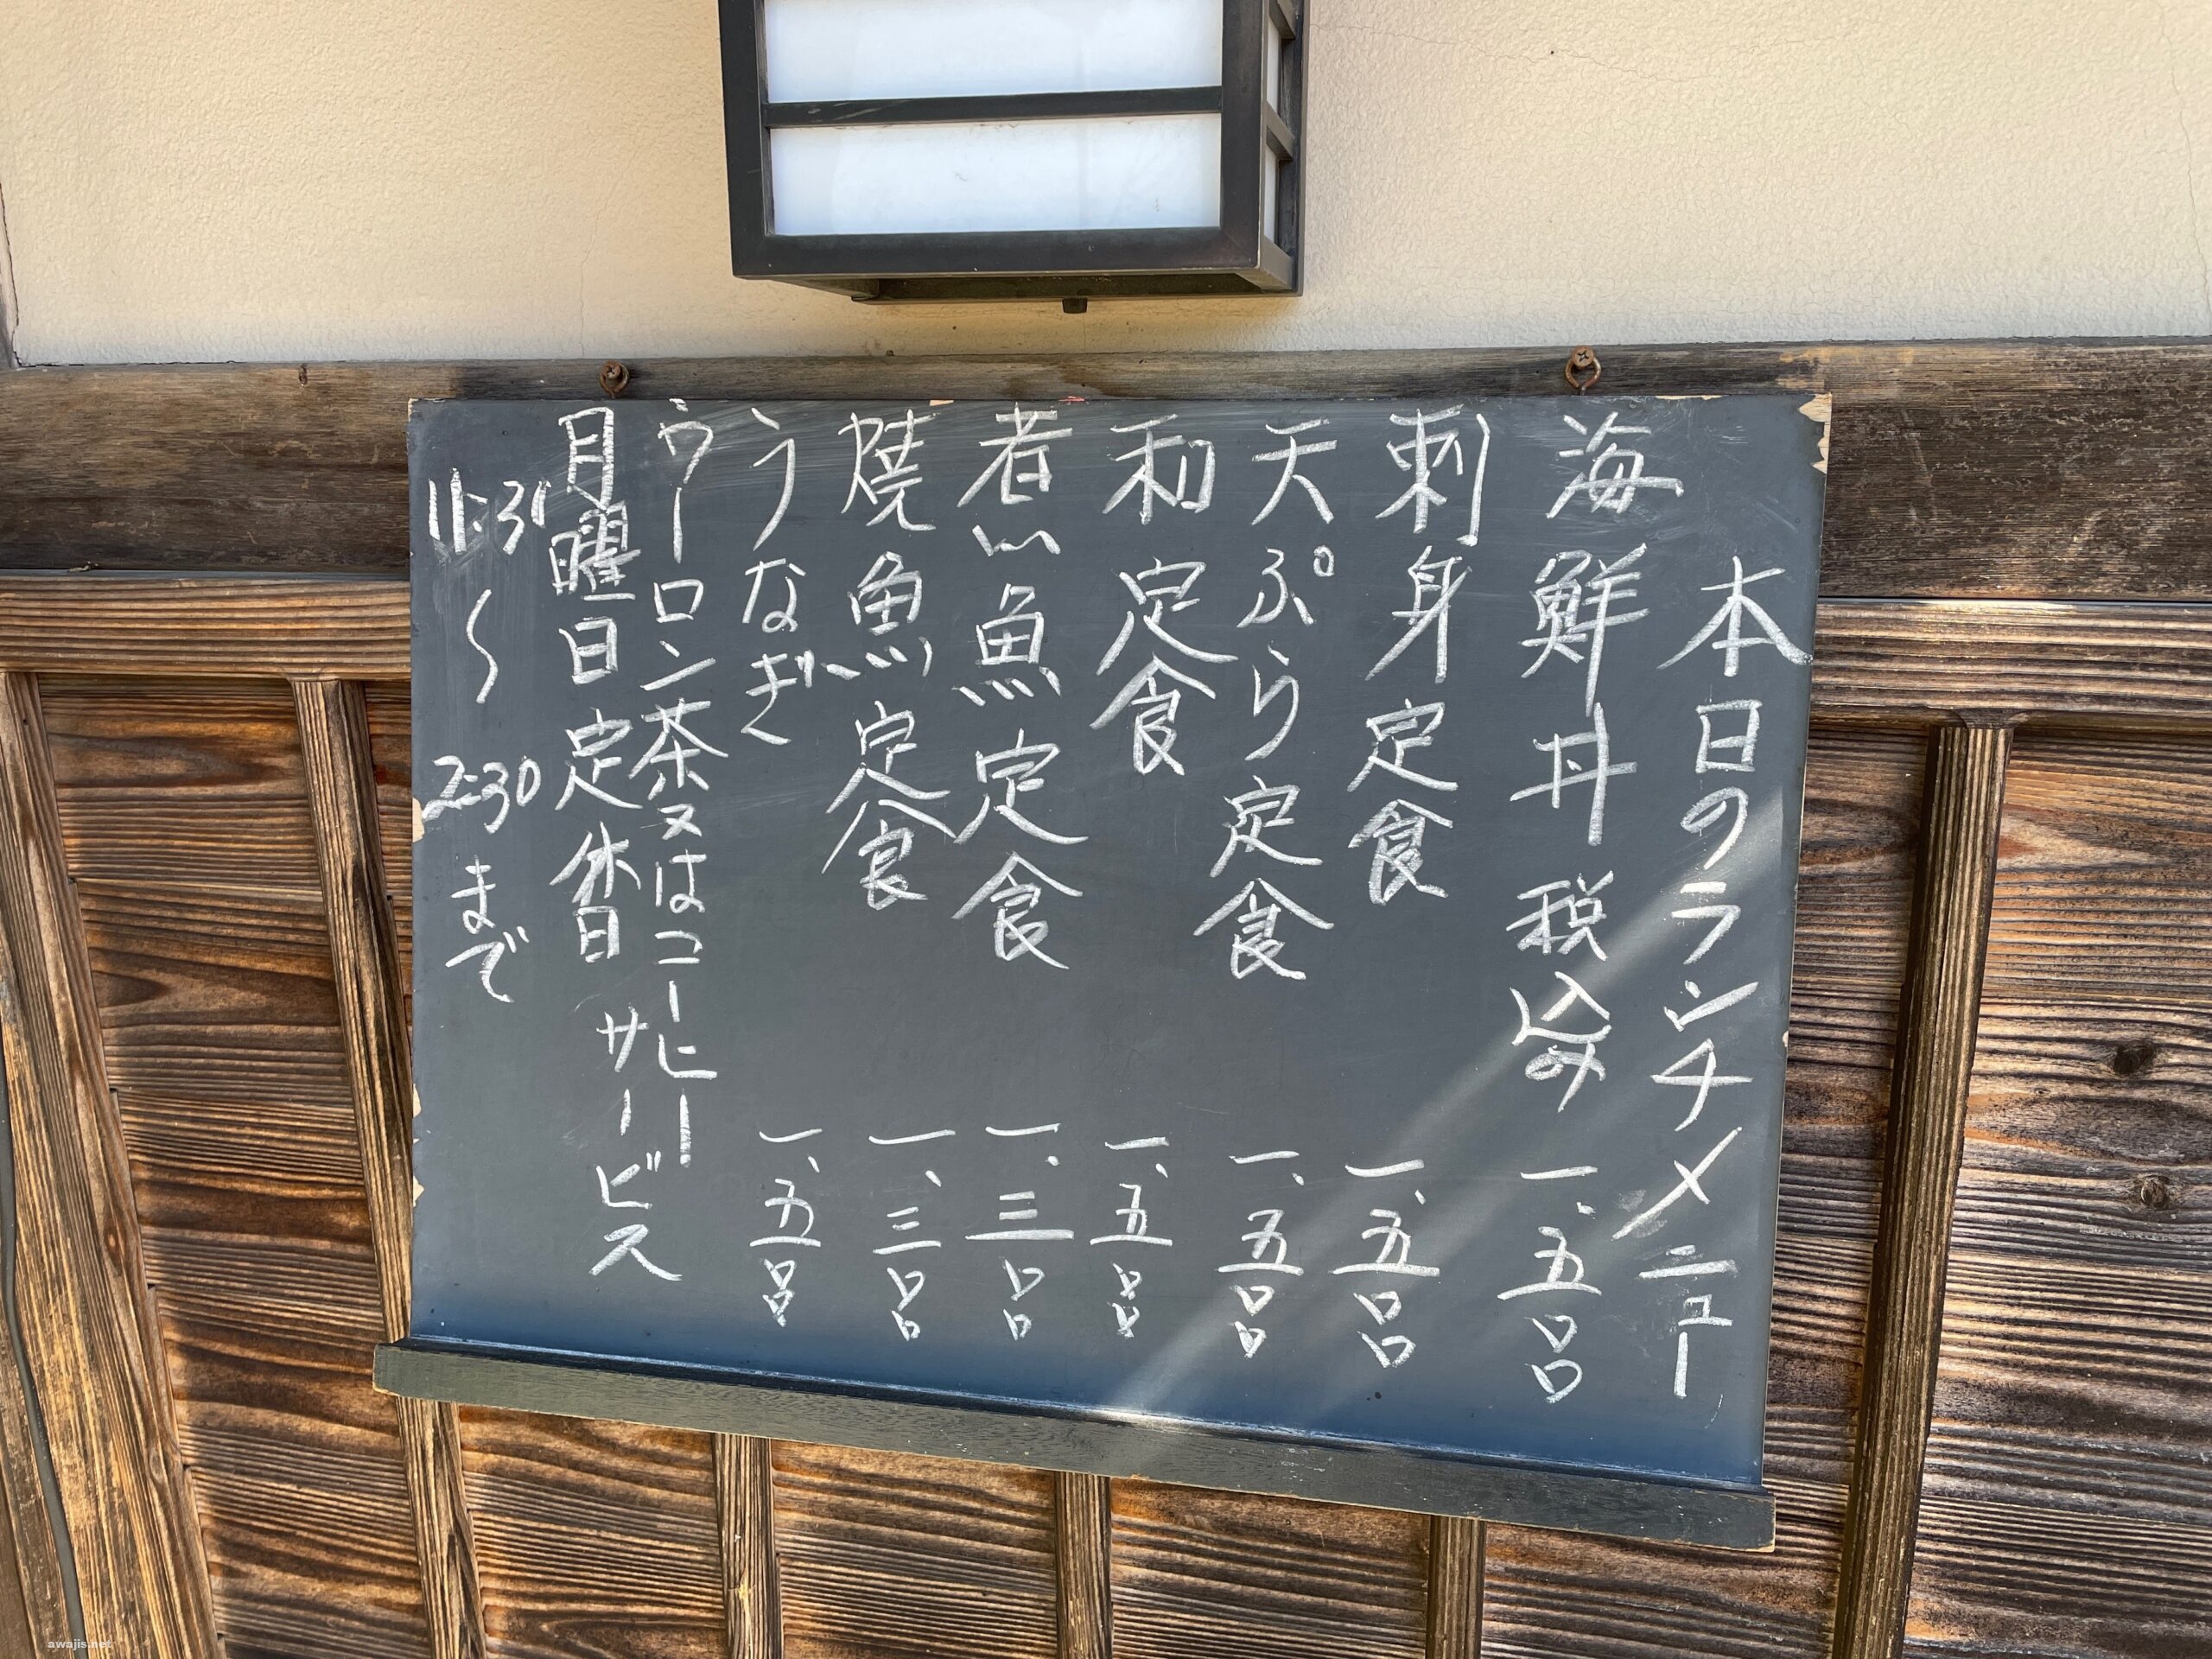 本日のランチメニュー
海鮮丼 税込み 一、五〇〇
刺身定食 一、五〇〇
天ぷら定食 一、五〇〇
和定食 一、五〇〇
煮魚定食 一、三〇〇
焼魚定食 一、三〇〇
うなぎ 一、五〇〇
ウーロン茶又はコーヒー
サービス
月曜日定休日
11:30
〜
2:30
まで
awajis.net